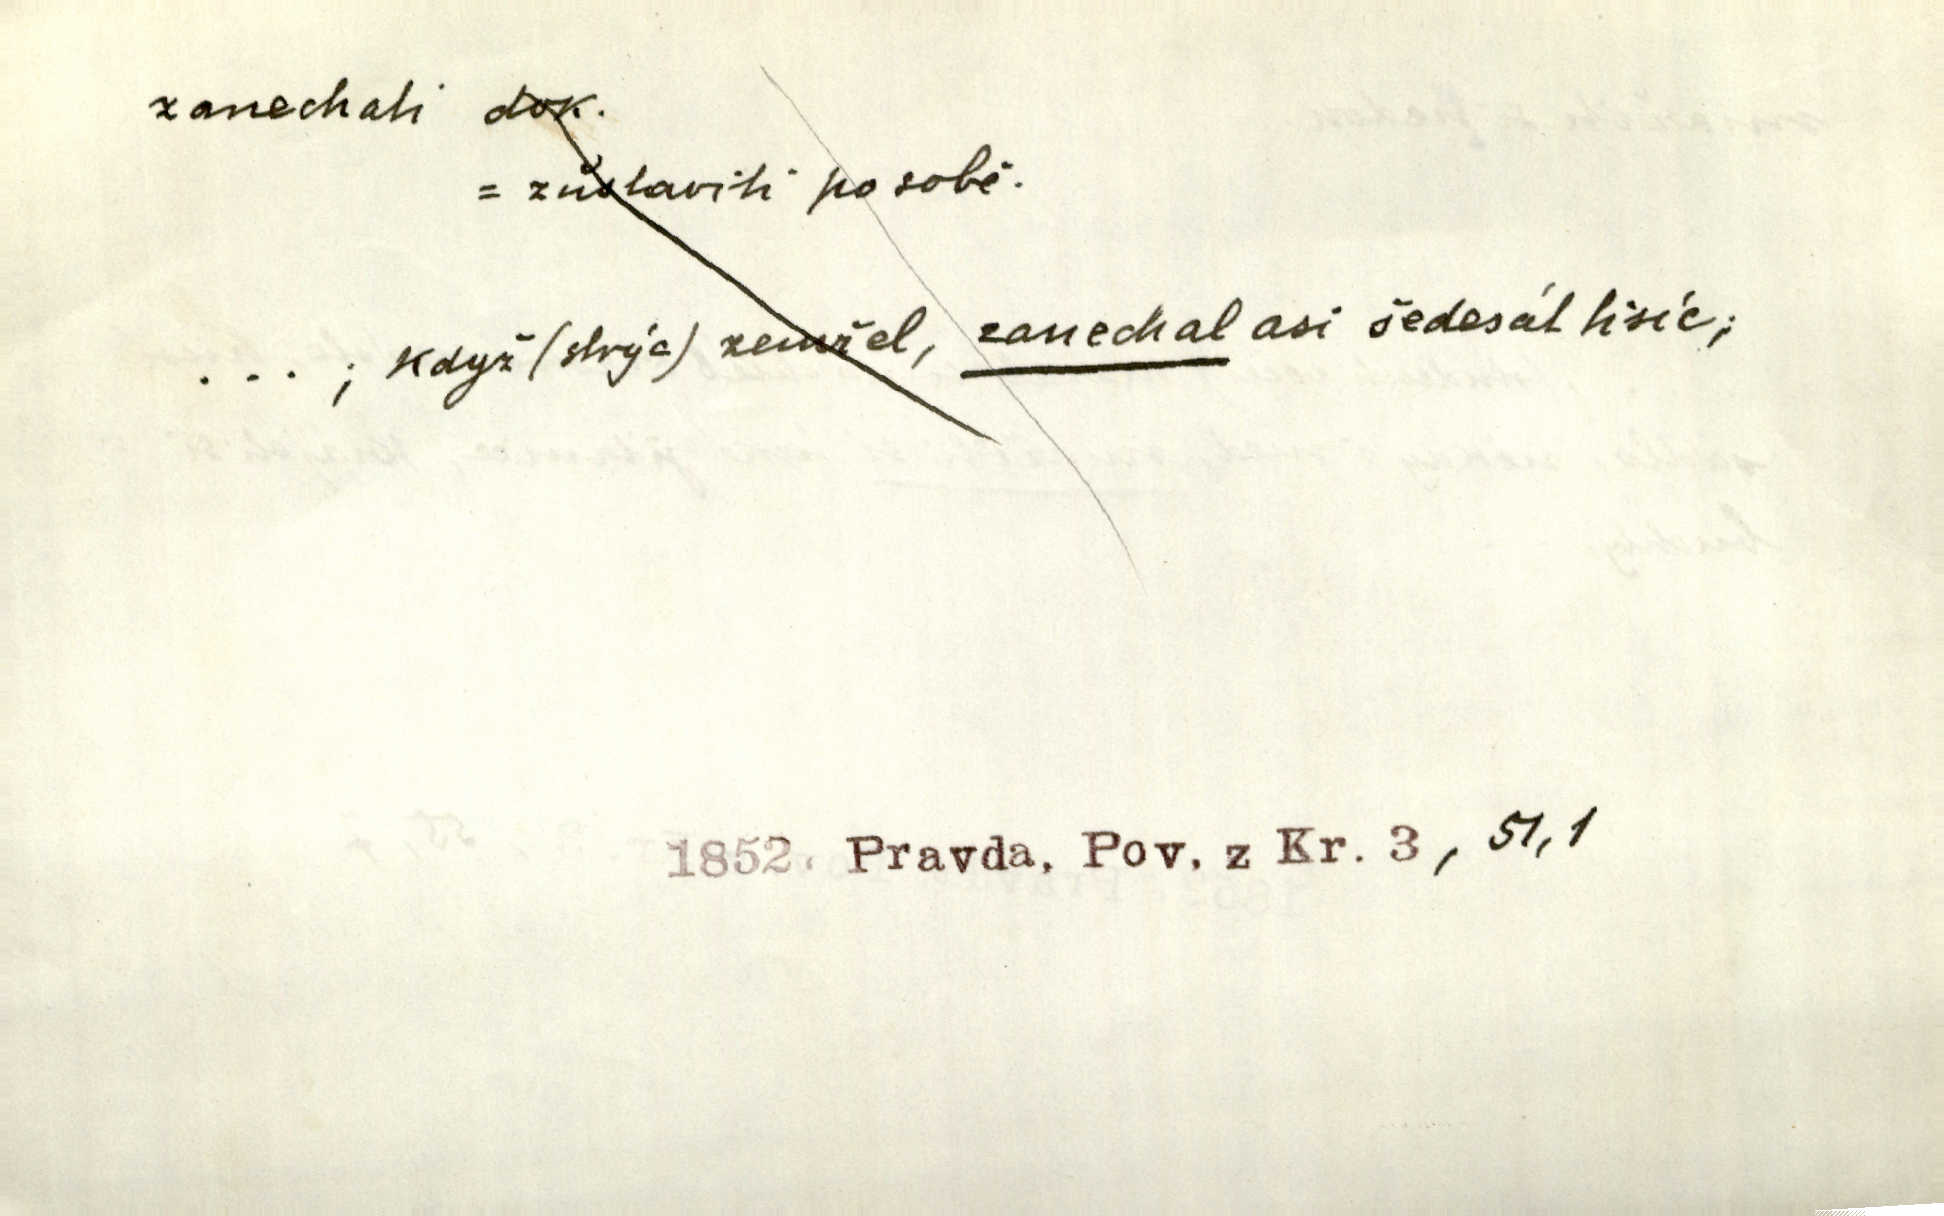 zanechati dok.
= zůstaviti po sobě.
. . . ; když (strýc) zemřel, zanechal asi šedesát tisíc;
1852. Pravda, Pov. z Kr. 3, 51,1